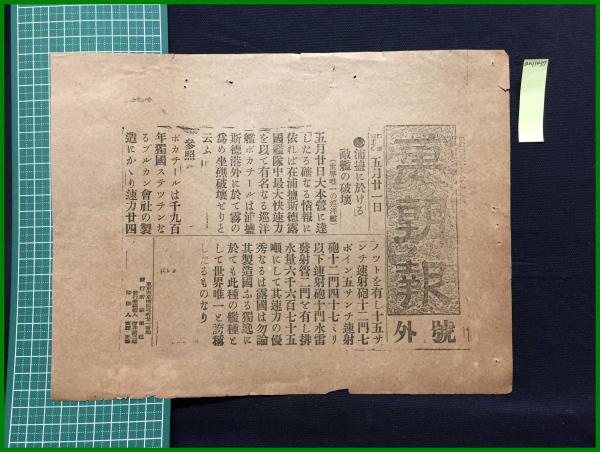 萬朝報
號外
五月廿一日
●浦鹽に於ける
敵艦の破壊
(世界唯一の巡洋艦)
五月廿日大本營に達
したる確なる情報に
依れば在浦鹽斯德露
國艦隊中最大快速力
を以て有名なる巡洋
艦ボカチールは浦鹽
斯德港外に於て霧の
爲め坐礁破壊せりと
云ふ
參照
ボカチールは千九百
年獨國ステツチンな
るブルカン會社の製
造にかゝり速力廿四
ノツトを有し十五サ
ンチ速射砲十二門七
ポイン五サンチ速射
砲十二門四十七ミリ
以下速射砲十門水雷
發射管二門を有し排
水量六千六百七十五
噸にして其速力の優
秀なるは露國は勿論
其製造國ふる獨逸に
於ても此種の艦種と
して世界唯一と誇稱
したるものなり